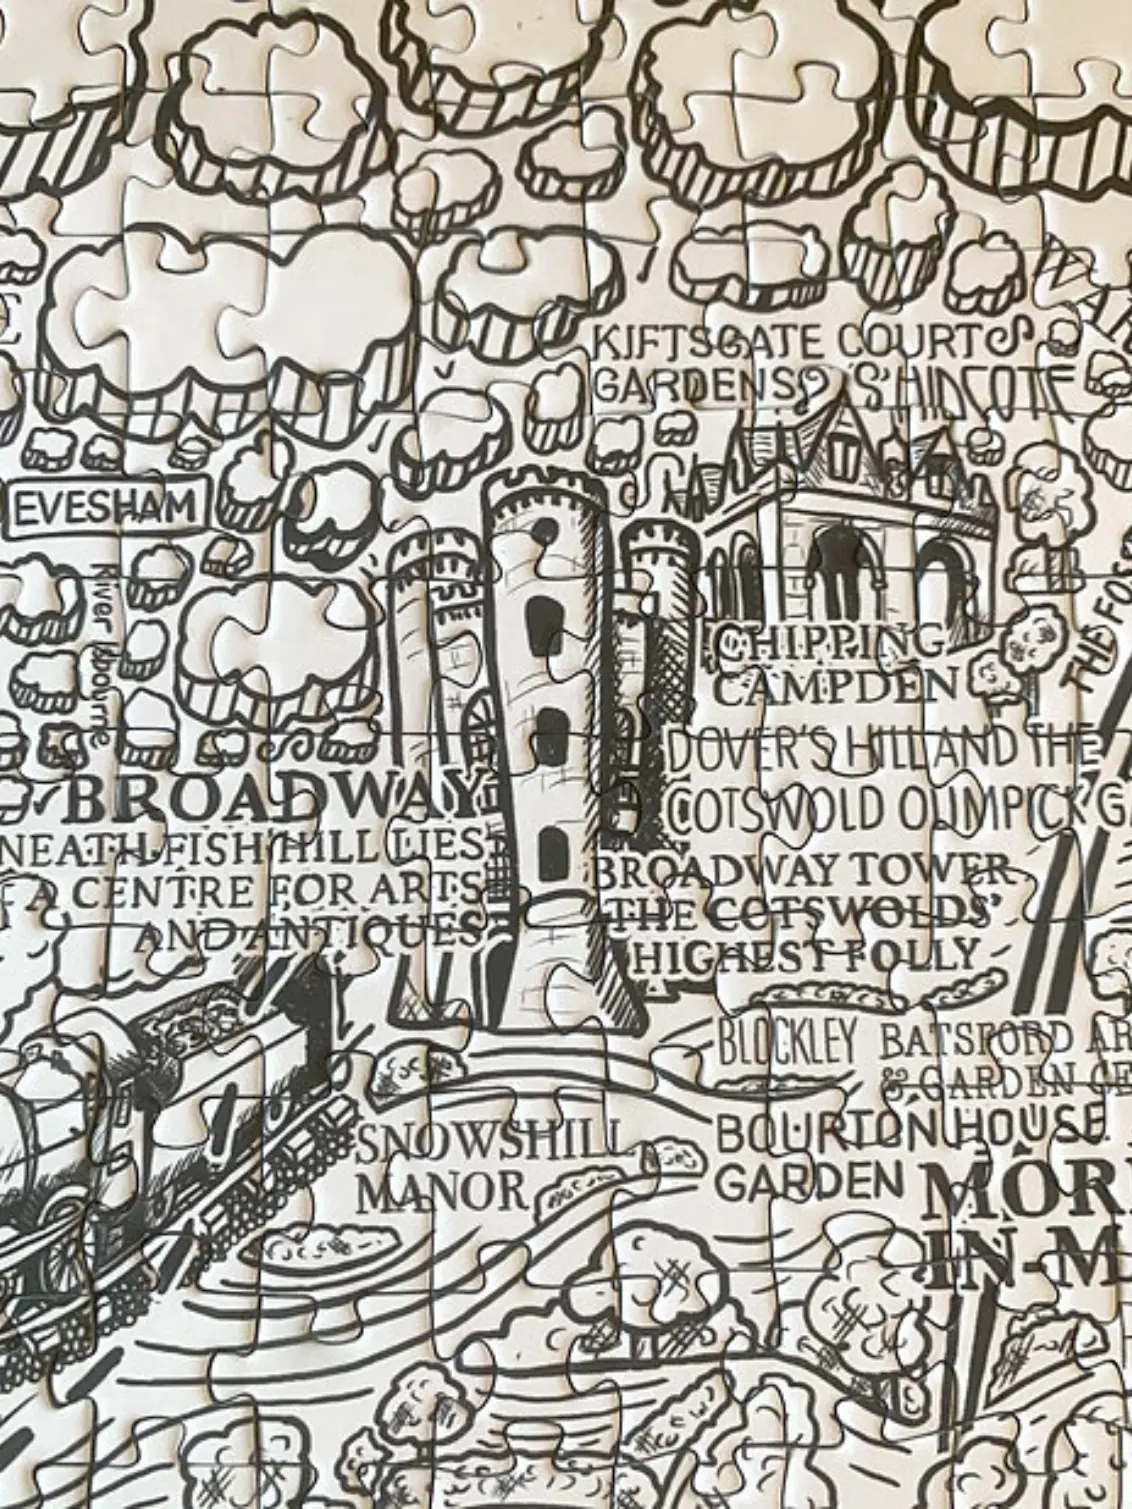 KIFTSGATE COURT
GARDENS & HIDCOTE
EVESHAM
River Isbourne
CHIPPING
CAMPDEN
DOVER'S HILL AND THE
COTSWOLD OLIMPICK GA
BROADWAY
NEATH FISH HILL LIES
A CENTRE FOR ARTS
AND ANTIQUES
BROADWAY TOWER
THE COTSWOLDS'
HIGHEST FOLLY
THE FOS
BLOCKLEY
BATSFORD AR
& GARDEN CE
SNOWSHILL
MANOR
BOURTON HOUSE
GARDEN
MOR
IN-M